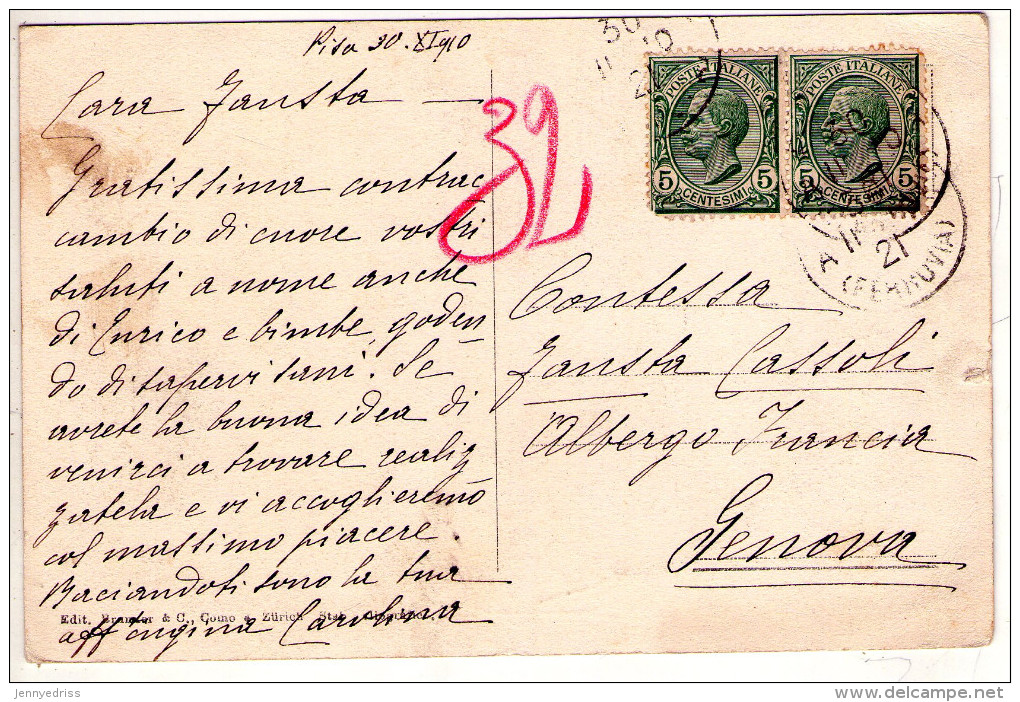 Pisa 30. XI 910
Cara Fausta —
Gratissima contrac
cambio di cuore vostri
saluti a nome anche
di Enrico e bimbe, goden
do di sapervi sani. Se
avrete la buona idea di
venirci a trovare realiz
zatela e vi accoglieremo
col massimo piacere.
Baciandoti sono la tua
aff cugina Carolina
Edit. Brunner & C., Como e Zürich Stab.
32
30
10
21
POSTE ITALIANE
5 CENTESIMI 5
POSTE ITALIANE
5 CENTESIMI 5
11
21
(FERROVIA)
Contessa
Fausta Cassoli
Albergo Francia
Genova
jennyedriss
www.delcampe.net